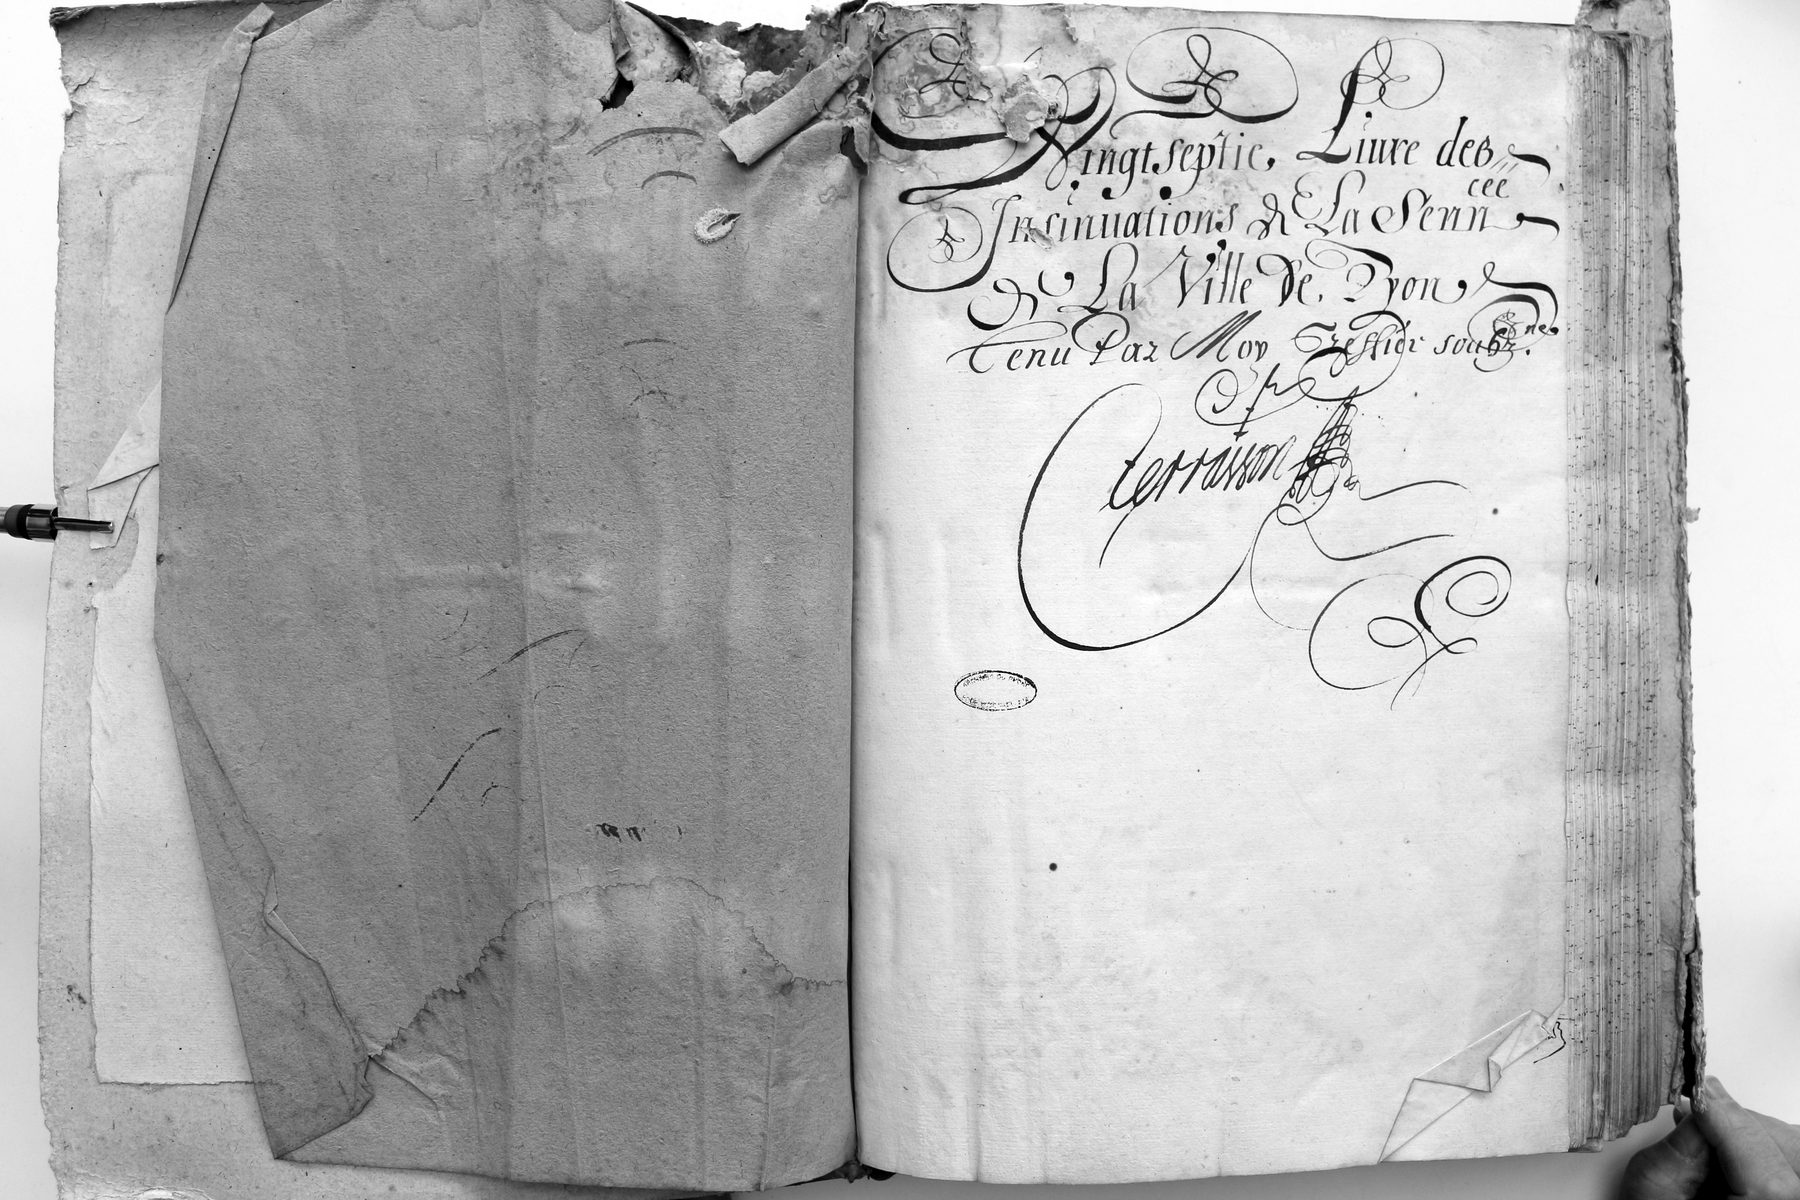 Vingtseptie. Liure des
Insinuations de La Senn.cée
de La Ville de Lyon
Tenu Par Moy Greffier soubz.ne.
terrasson